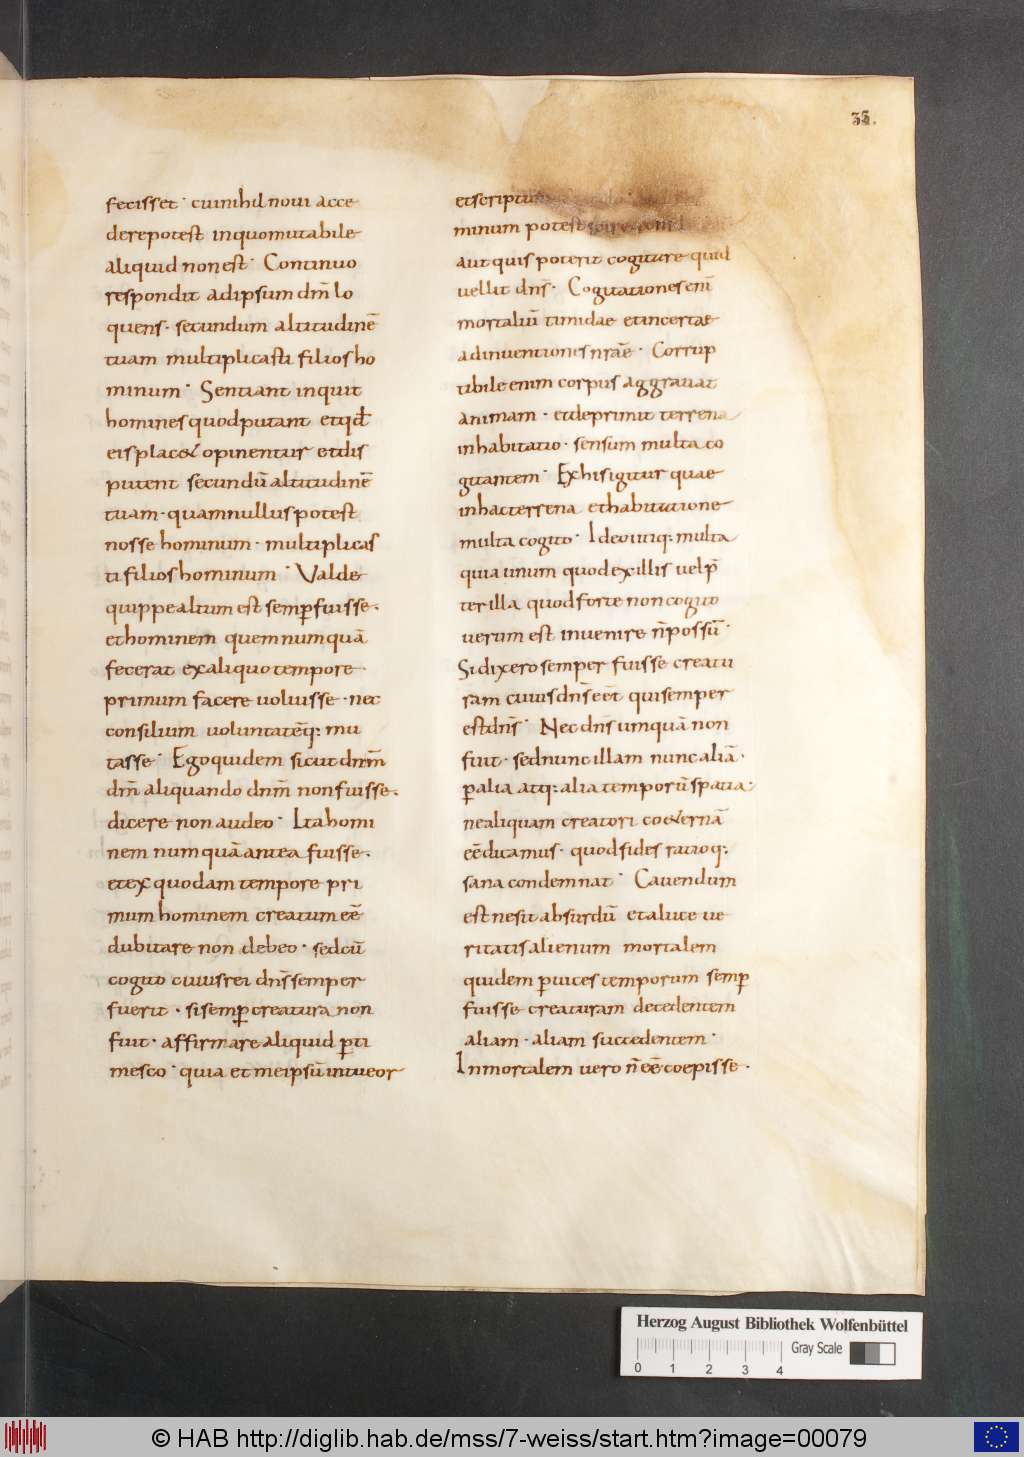 35.
fecisset · cui nihil noui acce
dere potest in quo mutabile
aliquid non est · Continuo
respondit ad ipsum dm̄ lo
quens · secundum altitudinē
tuam multiplicasti filios ho
minum · Sentiant inquit
homines quod putant et qđ
eis placet opinentur et dis
putent secundū altitudinē
tuam · quam nullus potest
nosse hominum · multiplicas
ti filios hominum · Valde
quippe altum est semp fuisse ·
et hominem quem numquā
fecerat ex aliquo tempore ·
primum facere uoluisse · nec
consilium uoluntatēq; mu
tasse · Ego quidem sicut dn̄m
dm̄ aliquando dnm̄ non fuisse ·
dicere non audeo · Ita homi
nem numquā antea fuisse ·
et ex quodam tempore pri
mum hominem creatum eē
dubitare non debeo · sed cū
cogito cuius rei dn̄s semper
fuerit · si semp creatura non
fuit · affirmare aliquid pti
mesco · quia et me ipsū intueor
et scriptum
minum potest
aut quis poterit cogitare quid
uellit dn̄s · Cogitationes eni̅
mortaliū timidae et incertae
adinuentiones nrāe · Corrup
tibile enim corpus aggrauat
animam · et deprimit terrena
inhabitatio · sensum multa co
gitantem · Ex his igitur quae
in hac terrena et habitatione
multa cogito · Ideo utiq; multa
quia unum quod ex illis uel p̄
ter illa quod forte non cogito
uerum est inuenire n̄ possū ·
Si dixero semper fuisse creatu
ram cuius dn̄s eēt qui semper
est dn̄s · Nec dn̄s umquā non
fuit · sed nunc illam nunc aliā ·
p alia atq; alia temporū spatia ·
ne aliquam creatori coaeternā
eē dicamus · quod fides ratioq;
sana condemnat · Cauendum
est ne sit absurdū et a luce ue
ritatis alienum mortalem
quidem p uices temporum semp
fuisse creaturam decedentem
aliam · aliam succedentem ·
Inmortalem uero n̄ eē coepisse ·
Herzog August Bibliothek Wolfenbüttel
Gray Scale
0 1 2 3 4
© HAB http://diglib.hab.de/mss/7-weiss/start.htm?image=00079